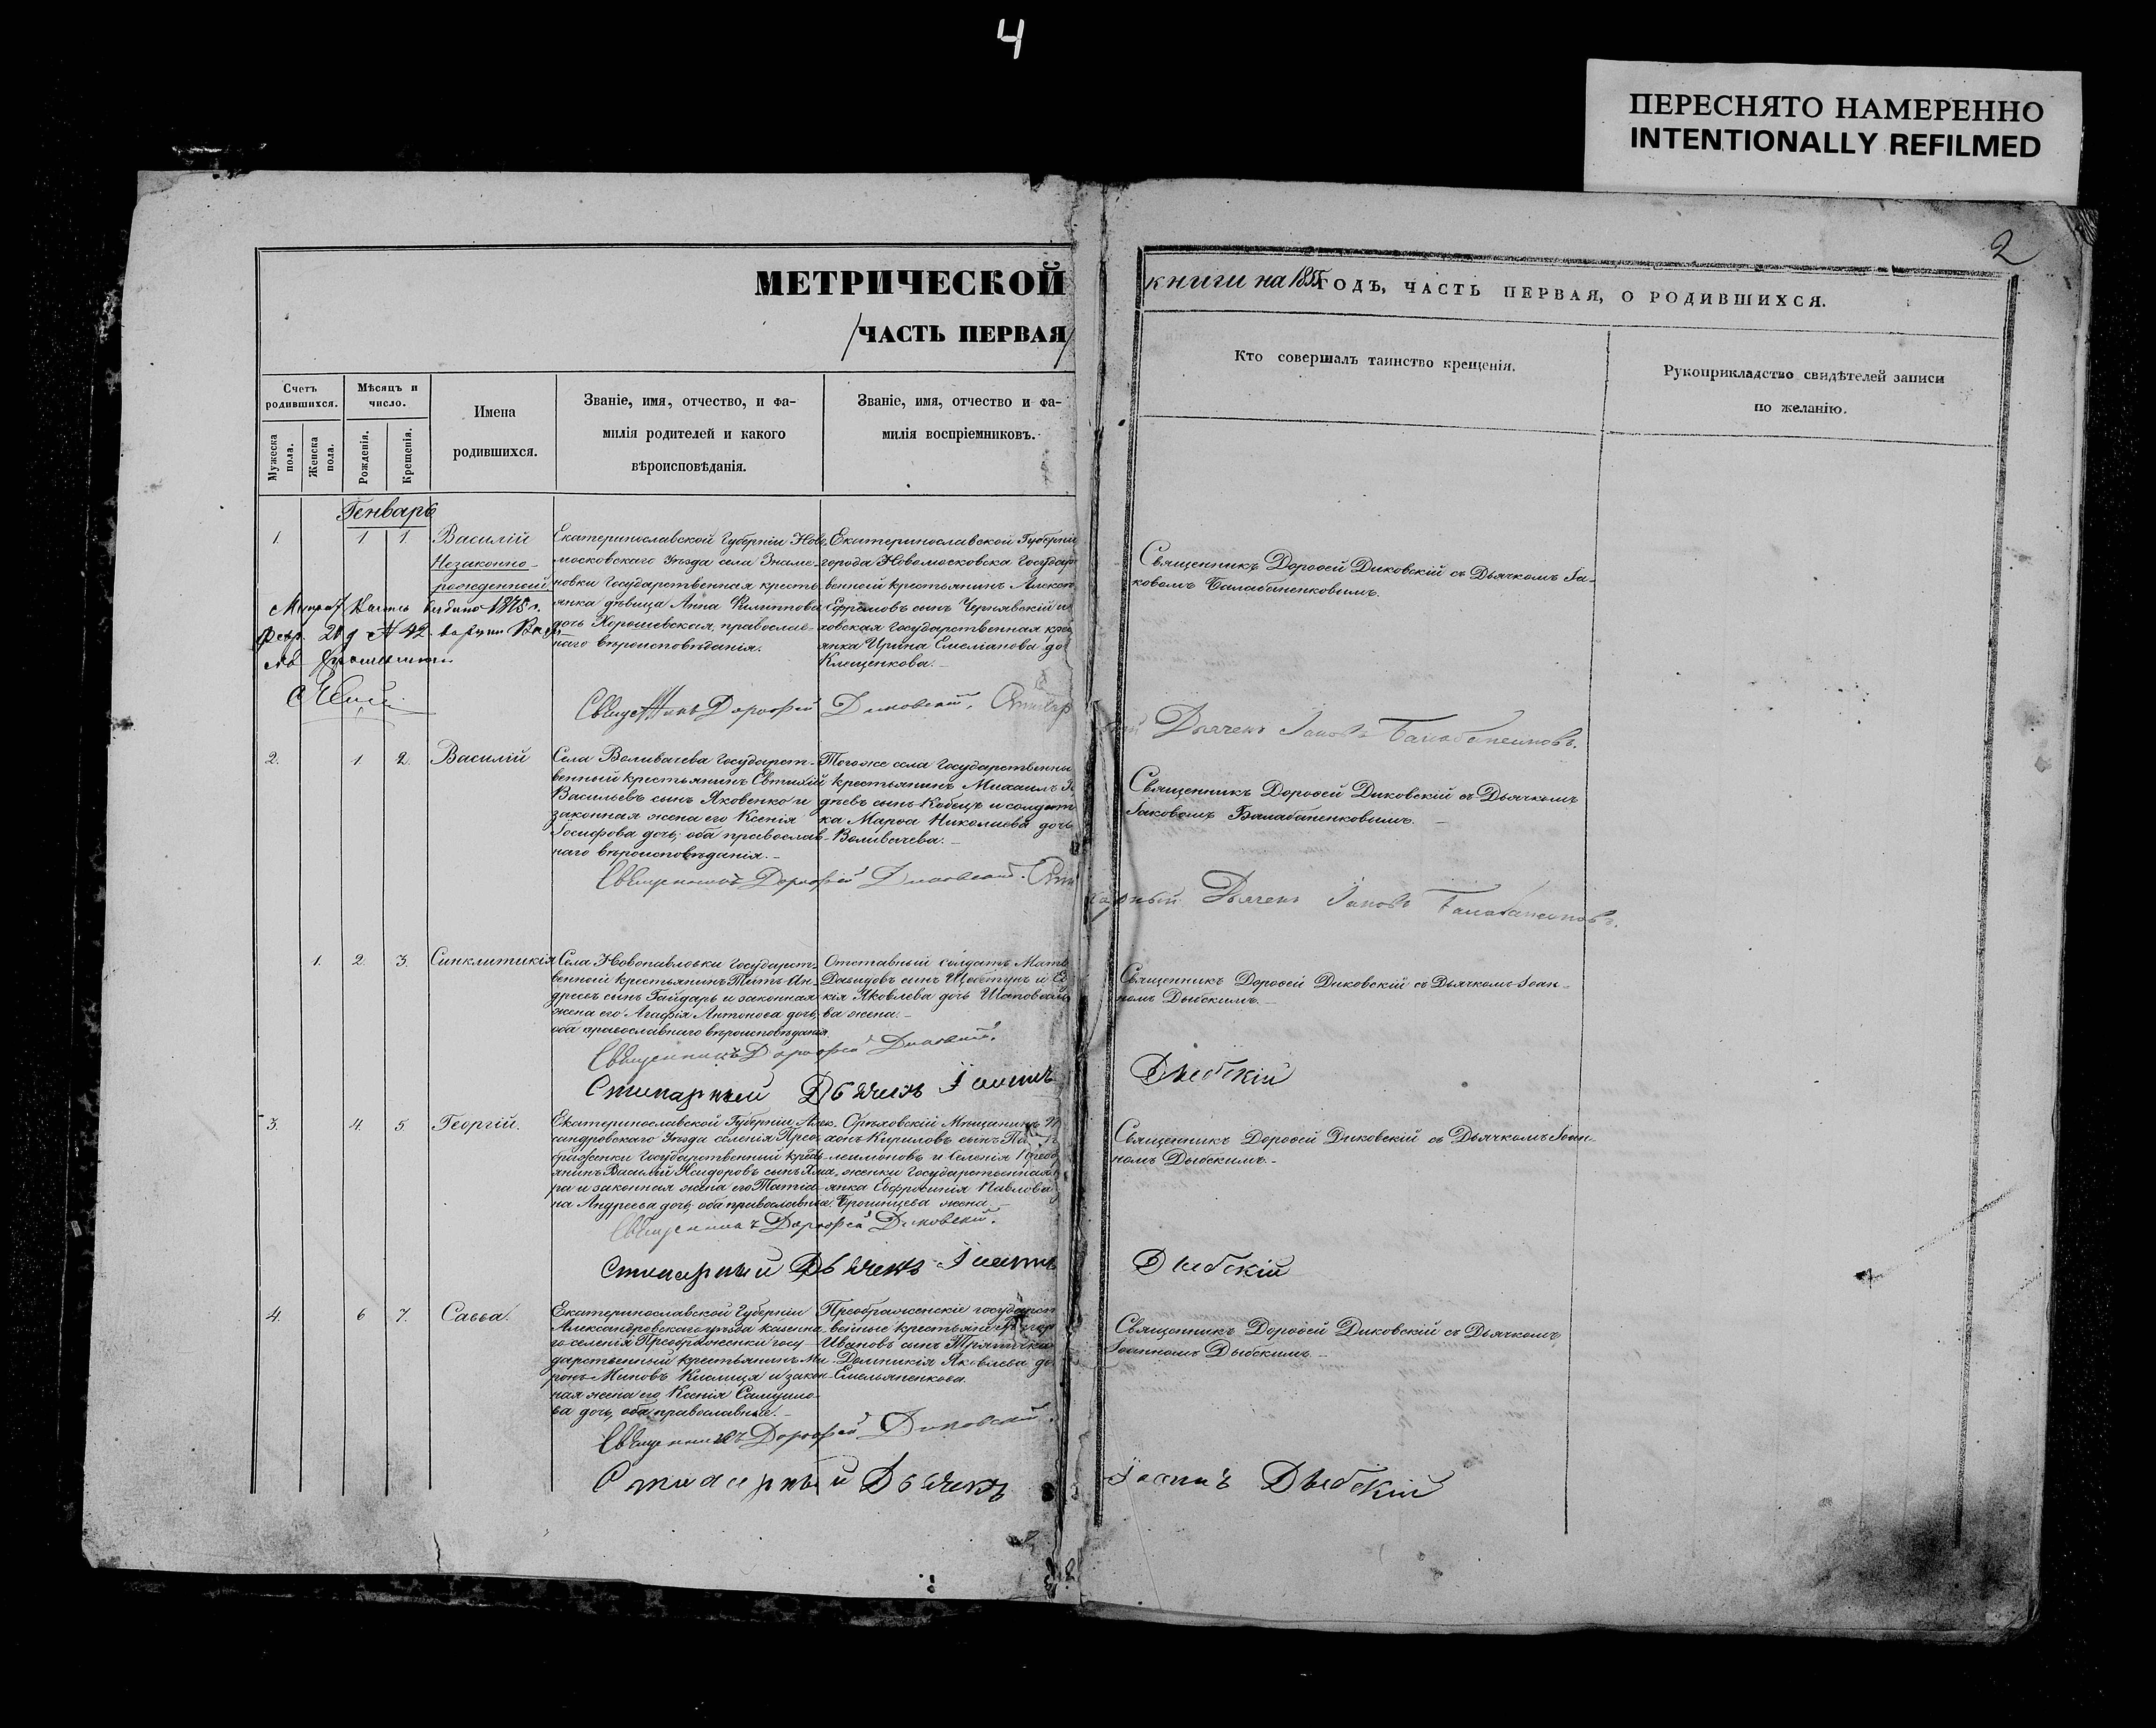 4
ПЕРЕСНЯТО НАМЕРЕННО
INTENTIONALLY REFILMED
2
МЕТРИЧЕСКОЙ
ЧАСТЬ ПЕРВАЯ
книги на 1855 ГОДЪ, ЧАСТЬ ПЕРВАЯ, О РОДИВШИХСЯ.
Счетъ родившихся.
Мужеска пола.
Женска пола.
Мѣсяцъ и число.
Рожденія.
Крещенія.
Имена
родившихся.
Званіе, имя, отчество, и фа-
милія родителей и какого
вѣроисповѣданія.
Званіе, имя, отчество и фа-
милія воспріемниковъ.
Кто совершалъ таинство крещенія.
Рукоприкладство свидѣтелей записи
по желанію.
Генварь
1. 1 1 Василій
Незаконно-
рожденный
Екатеринославской Губерніи Ново-
московскаго Уѣзда села Знаме-
новки Государственная кресть-
янка дѣвица Анна Филиппова
дочь Хорошевская, православ-
наго вѣроисповѣданія.
Екатеринославской Губерніи
города Новомосковска Государ
венный крестьянинъ Алексѣ
Ефремовъ сынъ Чернявскій и
ховская Государственная крес
янка Ирина Емеліанова до
Клещенкова.
Священникъ Дороѳей Диковскій съ Дьячкомъ Іа-
ковомъ Балабаненковымъ.
1875 г.
№ 42
Священникъ Дорофей Диковскій.
Дьячекъ Іаковъ Балабаненковъ.
2. 1 2. Василій
Села Воливачева Государст-
венный крестьянинъ Евтихій
Васильевъ сынъ Яковенко и
законная жена его Ксенія
Іосифова дочь; оба православ-
наго вѣроисповѣданія.
Тогоже села Государственны
крестьянинъ Михаилъ
сынъ Кобецъ и солдат
ка Марѳа Николаева дочь
Воливачева.
Священникъ Дороѳей Диковскій съ Дьячкомъ
Іаковомъ Балабаненковымъ.
Священникъ Дорофей Диковскій.
Дьячекъ Іаковъ Балабаненковъ.
1. 2. 3. Синклитикія
Села Новопавловки Государст-
венный крестьянинъ Титъ Ан-
дреевъ сынъ Гайдаръ и законная
жена его Агафія Антонова дочь,
оба православнаго вѣроисповѣданія.
Отставный солдатъ Матв
Давидовъ сынъ Щебетунъ и Ев
кія Яковлева дочь Шаповало
ва жена.
Священникъ Дороѳей Диковскій съ Дьячкомъ Іоан-
номъ Дыбскимъ.
Священникъ Дорофей Диковскій.
Стихарный Дьячекъ Іоаннъ Дыбскій
3. 4. 5. Георгій.
Екатеринославской Губерніи Алек-
сандровскаго Уѣзда селенія Прео-
браженки Государственный кресть-
янинъ Василій Исидоровъ сынъ Хма-
ра и законная жена его Татіа-
на Андреева дочь, оба православные.
Орѣховскій Мѣщанинъ
Кириловъ сынъ
и селенія Преоб
женки Государственная
янка Евфросинія Павлова
жена
Священникъ Дороѳей Диковскій съ Дьячкомъ Іоан-
номъ Дыбскимъ.
Священникъ Дорофей Диковскій.
Стихарный Дьячекъ Іоаннъ Дыбскій
4. 6 7. Савва.
Екатеринославской Губерніи
Александровскаго уѣзда казенна-
го селенія Преображенки госу-
дарственный крестьянинъ Ми-
ронъ Миновъ Кислиця и закон-
ная жена его Ксенія Самуило-
ва дочь, оба православные.
Преображенскіе государст
венные крестьяне
Ивановъ сынъ
Домникія Яковлева до
Емельяненкова.
Священникъ Дороѳей Диковскій съ Дьячкомъ
Іоанномъ Дыбскимъ.
Священникъ Дорофей Диковскій.
Стихарный Дьячекъ Іоаннъ Дыбскій